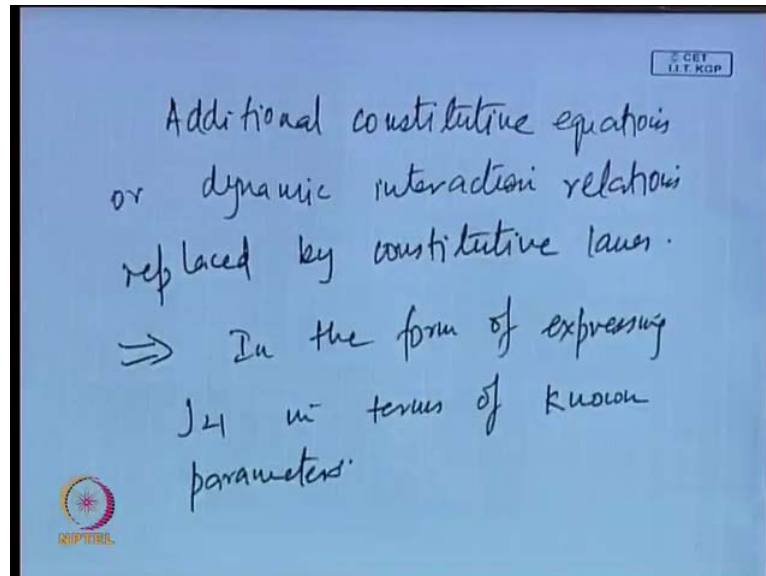 © CET
I.I.T. KGP
Additional constitutive equations
or dynamic interaction relations
replaced by constitutive laws.
⇒ In the form of expressing
J21 in terms of known
parameters.
NPTEL